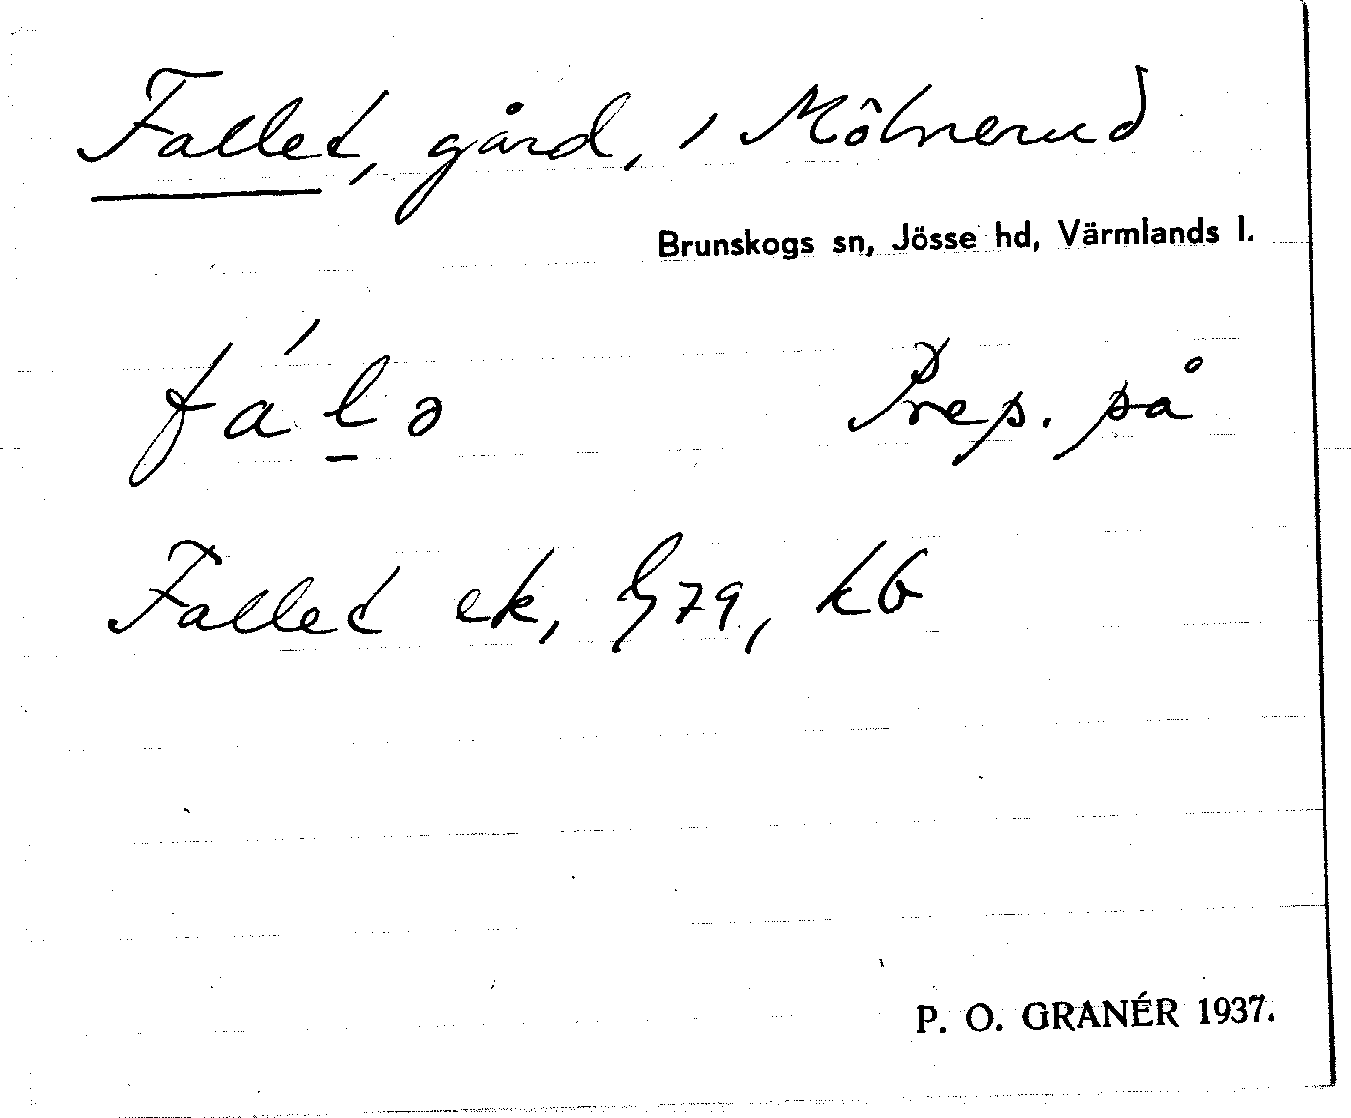 Fallet, gård, i Mölnerud
Brunskogs sn, Jösse hd, Värmlands l.
fáḻə Prep. på
Fallet ek, G79, kb
P. O. GRANÉR 1937.